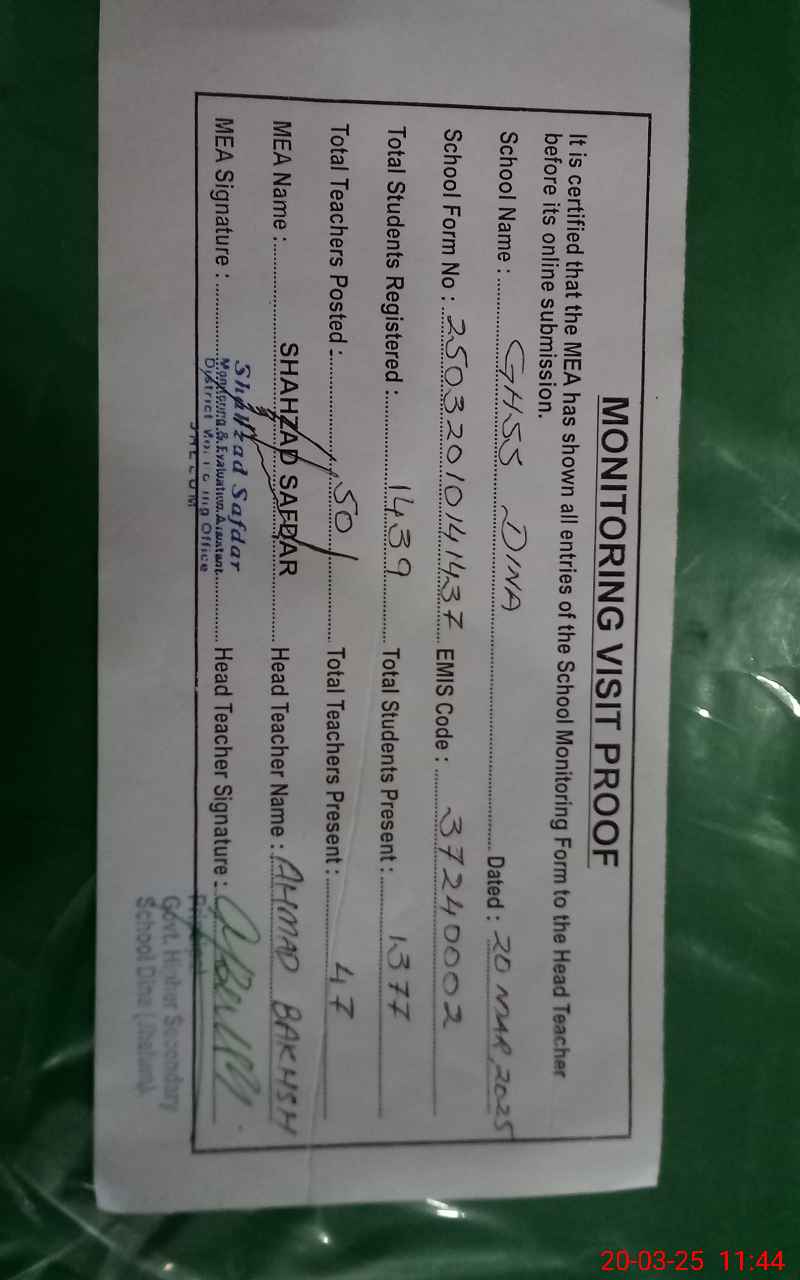 MONITORING VISIT PROOF
It is certified that the MEA has shown all entries of the School Monitoring Form to the Head Teacher
before its online submission.
School Name : GHSS DINA Dated : 20 MAR, 2025
School Form No : 25032010141437 EMIS Code : 37240002
Total Students Registered : 1439 Total Students Present : 1377
Total Teachers Posted : 50 Total Teachers Present : 47
MEA Name : SHAHZAD SAFDAR Head Teacher Name : AHMAD BAKHSH
MEA Signature : Head Teacher Signature :
Shahzad Safdar
Monitoring & Evaluation Assistant
District Monitoring Office
JHELUM
Principal
Govt. Higher Secondary
School Dina (Jhelum)
20-03-25 11:44